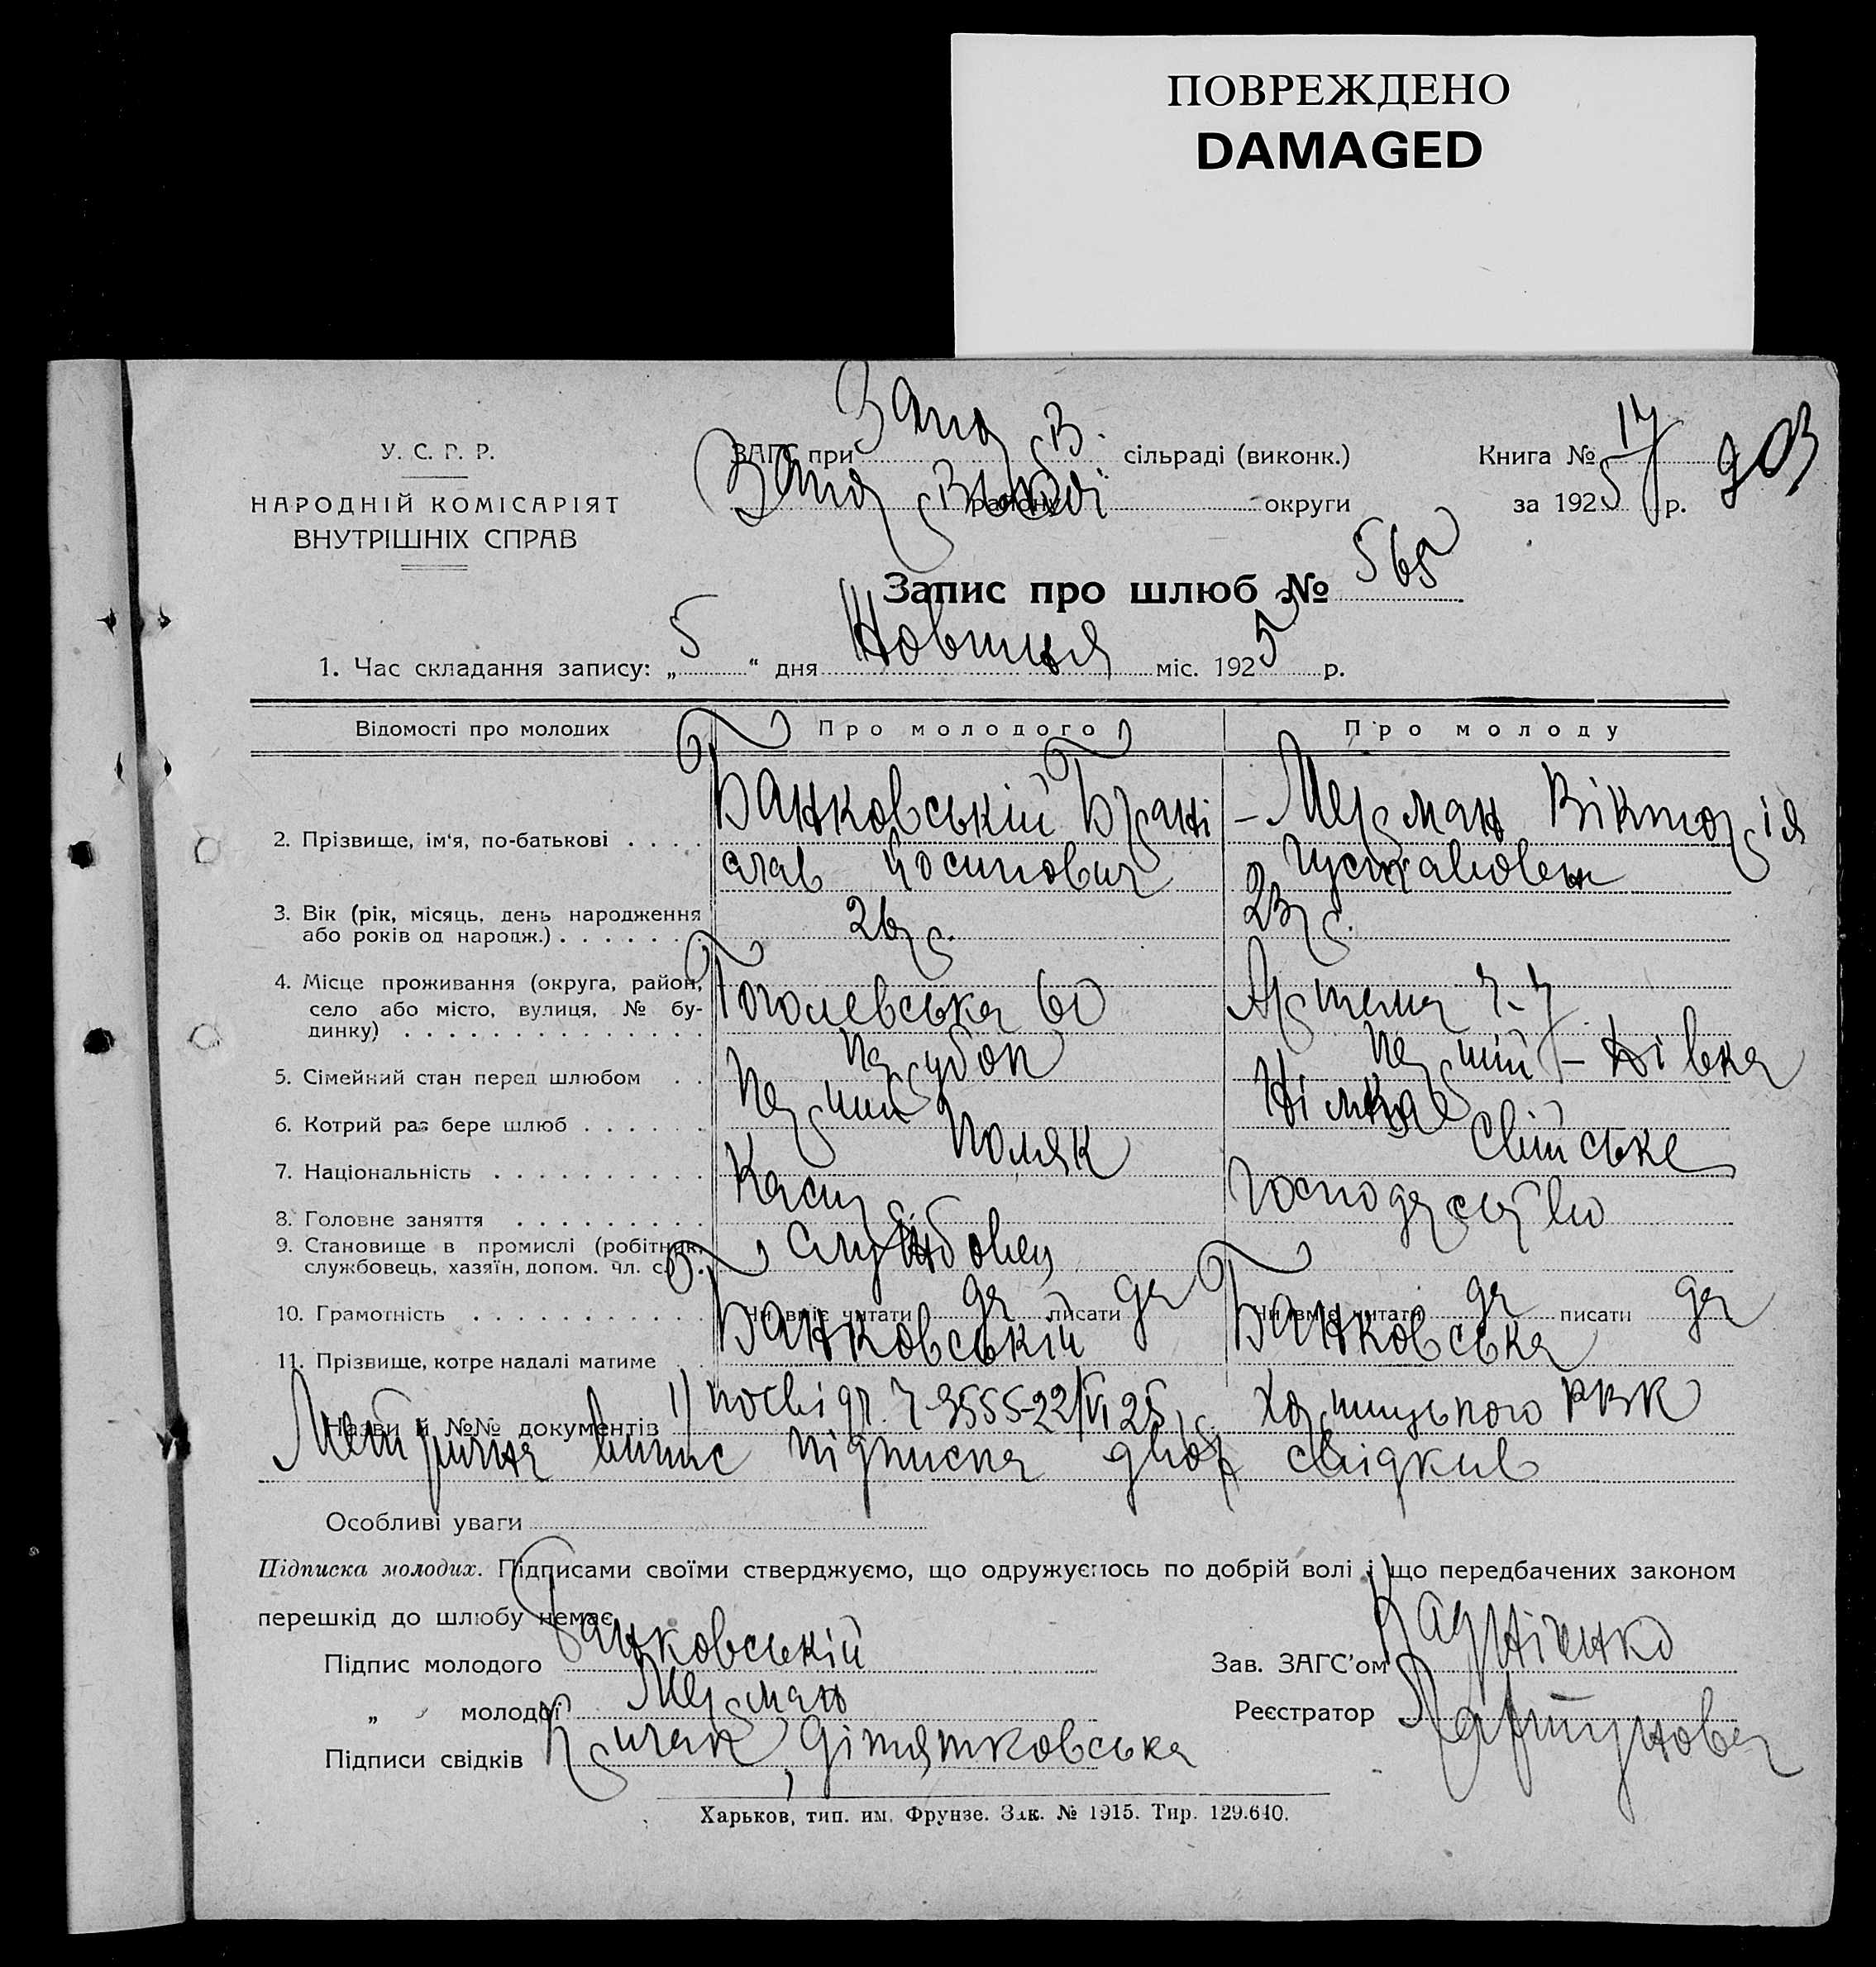 ПОВРЕЖДЕНО
DAMAGED
У. С. Р. Р.
НАРОДНІЙ КОМІСАРІЯТ
ВНУТРІШНІХ СПРАВ
ЗАГС при сільраді (виконк.)
району округи
Книга № 17
за 1925 р.
Запис про шлюб № 565
1. Час складання запису: „ 5 “ дня Новтня міс. 1925 р.
Відомості про молодих Про молодого Про молоду
2. Прізвище, ім'я, по-батькові . . . .
Банковській Брані
слав Йосипович
Мерман Вікторія
Густавовен
3. Вік (рік, місяць, день народження
або років од народж.) . . . . . . . 26 р. 23 р.
4. Місце проживання (округа, район,
село або місто, вулиця, № бу-
динку) . . . . . . . . . . . . . .
Гоголевська 60 Артема
5. Сімейний стан перед шлюбом . . парубок Дівка
6. Котрий раз бере шлюб . . . . . . перший перший
7. Національність . . . . . . . . . . Поляк Німка
8. Головне заняття . . . . . . . . . Касир Свійське
господарство
9. Становище в промислі (робітник,
службовець, хазяїн, допом. чл. с.) . Службовец
10. Грамотність . . . . . . . . . . . Чи вміє читати да писати да Чи вміє читати да писати да
11. Прізвище, котре надалі матиме . . Банковській Банковська
Назви й №№ документів 1) посвідч. 3555-22/VI 25 р. РВК
Метрична випис підписка двох свідкив
Особливі уваги
Підписка молодих. Підписами своїми стверджуємо, що одружуємось по добрій волі і що передбачених законом
перешкід до шлюбу немає
Підпис молодого Банковській
„ молодої Мерман
Підписи свідків Дітятковська
Зав. ЗАГС'ом
Реєстратор
Харьков, тип. им. Фрунзе. Зак. № 1915. Тир. 129.640.